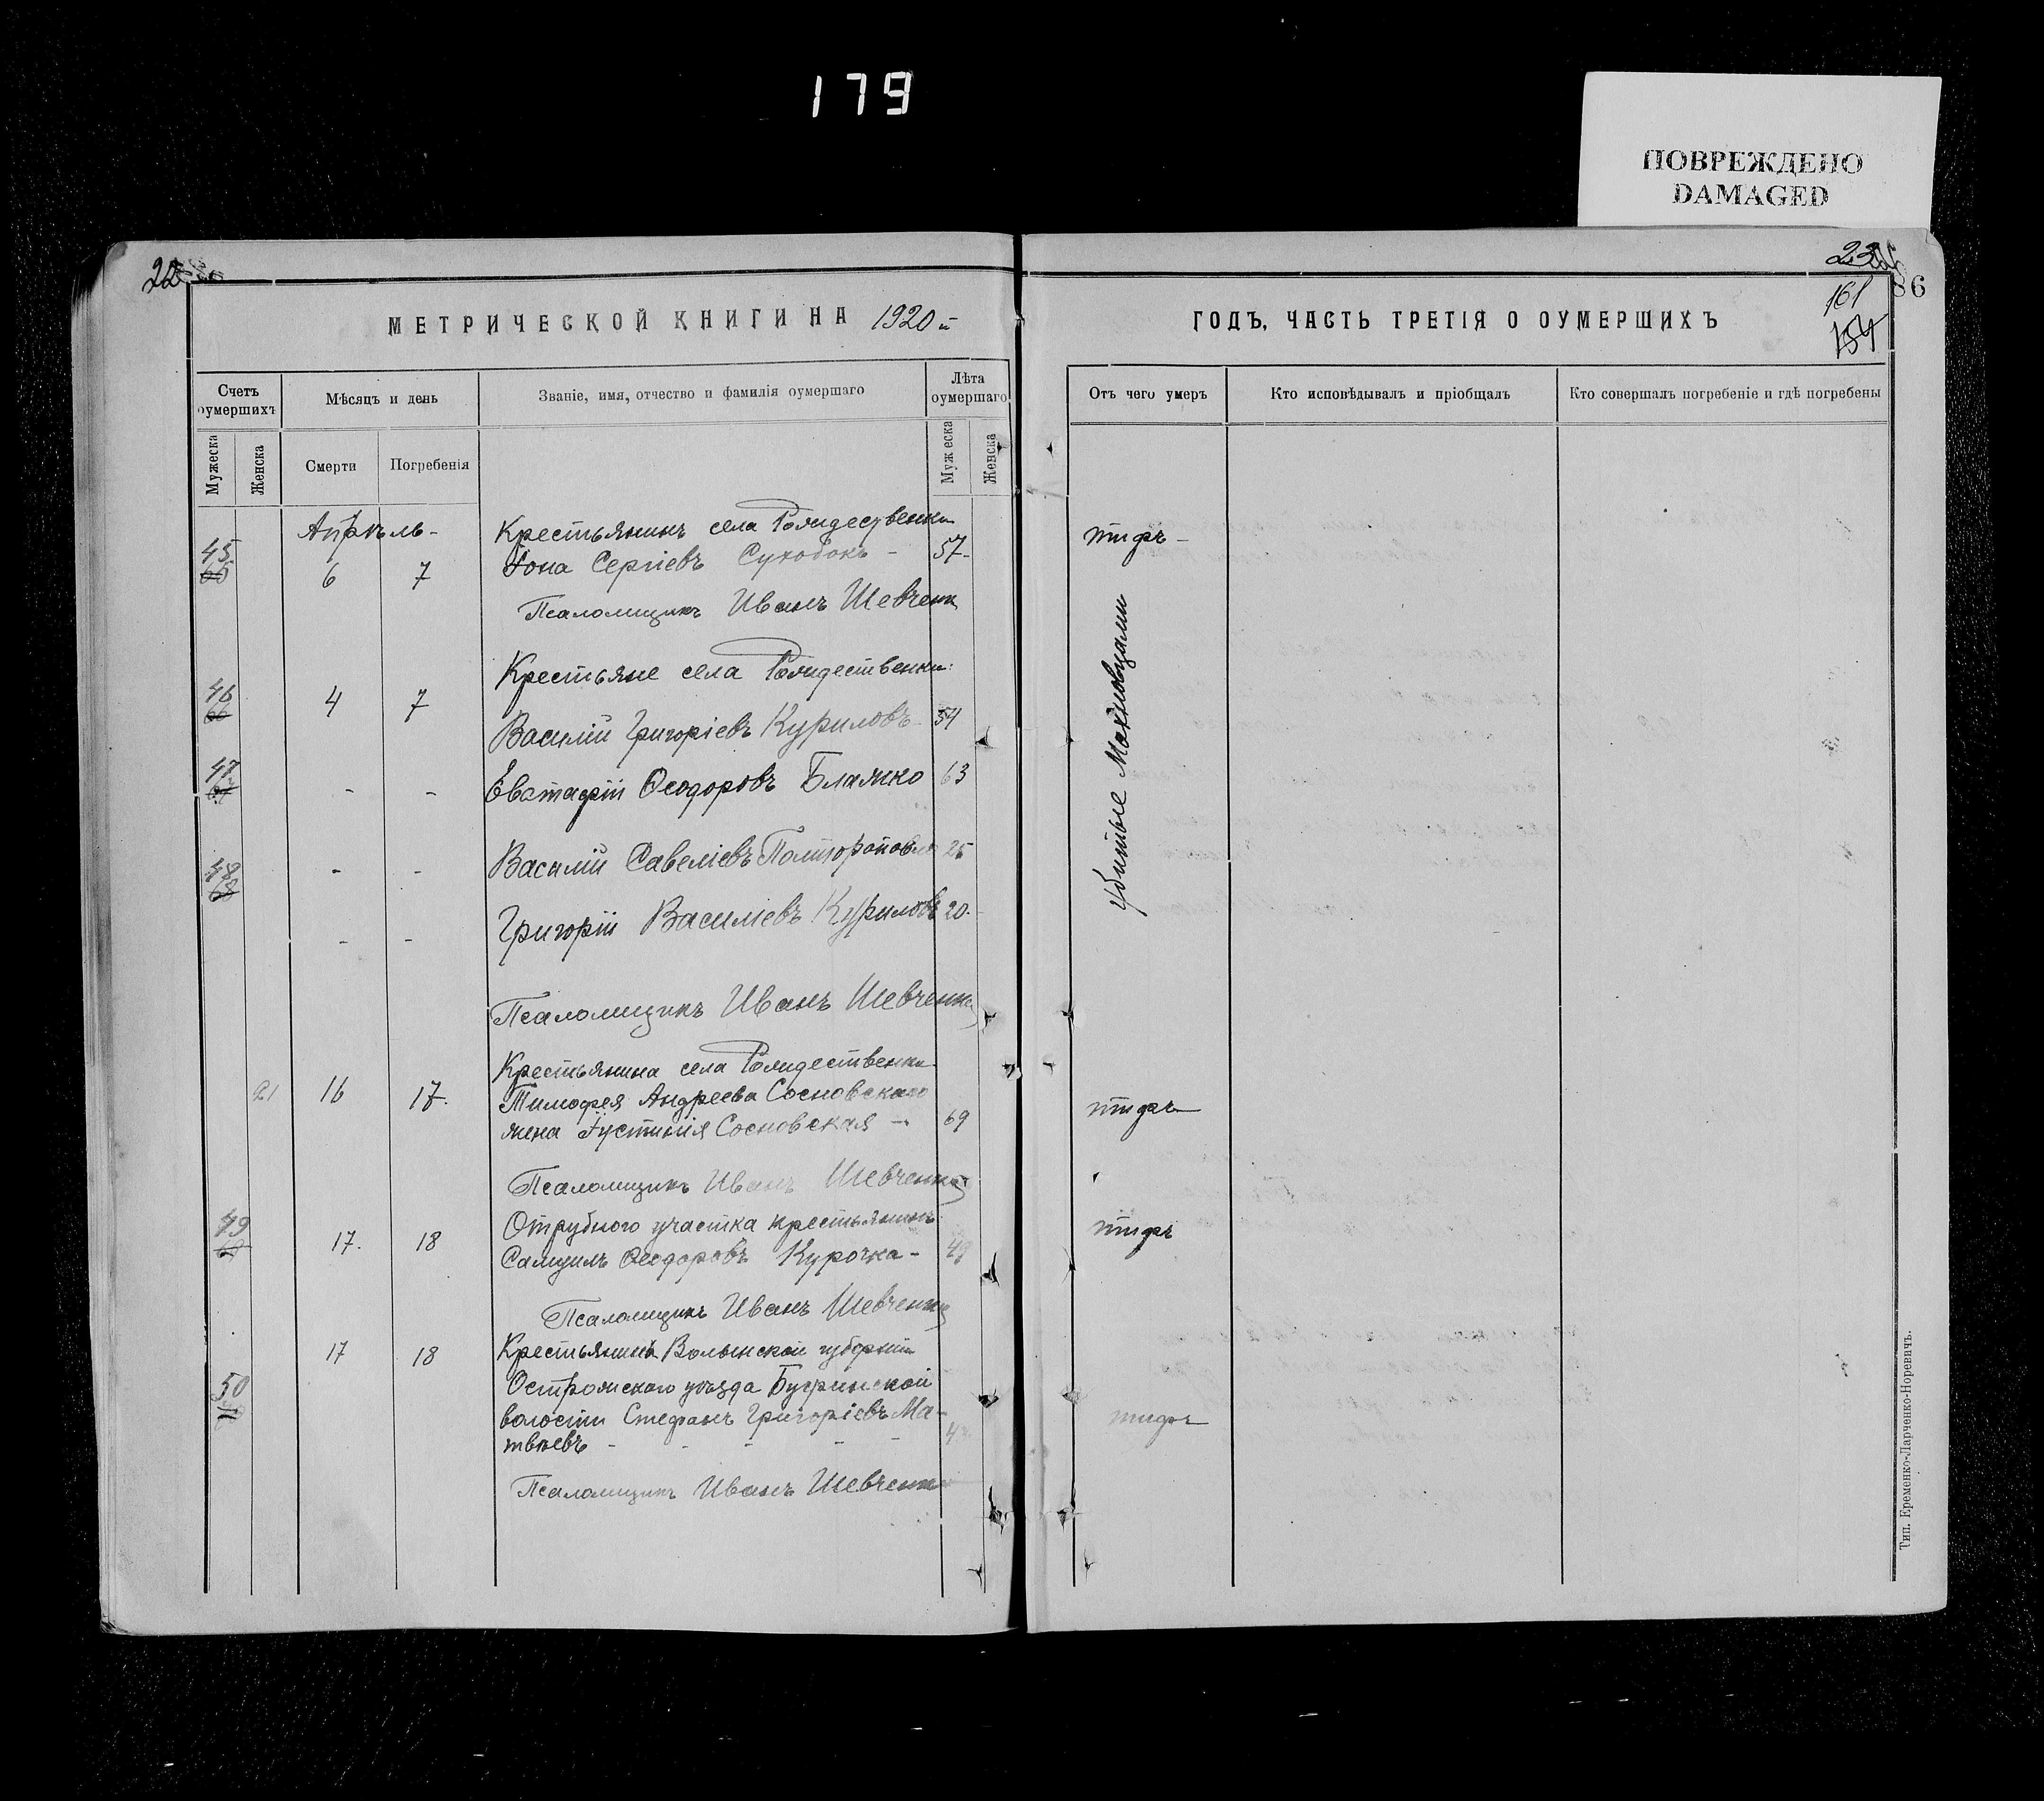 179
ПОВРЕЖДЕНО
DAMAGED
22
23
86
161
154
МЕТРИЧЕСКОЙ КНИГИ НА 1920 й
ГОДЪ, ЧАСТЬ ТРЕТІЯ О ОУМЕРШИХЪ
Счетъ оумершихъ
Мѣсяцъ и день
Званіе, имя, отчество и фамилія оумершаго
Лѣта оумершаго
Отъ чего умеръ
Кто исповѣдывалъ и пріобщалъ
Кто совершалъ погребеніе и гдѣ погребены
Мужеска
Женска
Смерти
Погребенія
Мужеска
Женска
Апрѣль-
Крестьянинъ села Рождественки
45 6 7 Іона Сергіевъ Сухобокъ - 57- тифъ -
65
Псаломщикъ Иванъ Шевченк
Крестьяне села Рождественки:
46 4 7 Василій Григоріевъ Куриловъ 54
66
Убитые Махновцами
47 - - Евстафій Ѳеодоровъ Бламко 63
67
48 - - Василій Савеліевъ 25
68
- - Григорій Василіевъ Куриловъ 20.
Псаломщикъ Иванъ Шевченко
Крестьянина села Рождественки
21 16 17. Тимофея Андреева Сосновскаго тифъ
жена Іустинія Сосновская - 69
Псаломщикъ Иванъ Шевченко
49 Отрубного участка крестьянинъ тифъ
69 17. 18 Самуилъ Ѳеодоровъ Курочка - 49
Псаломщикъ Иванъ Шевченко
17 18 Крестьянинъ Волынской губерніи
50 Острожскаго уѣзда Бугринской
волости Стефанъ Григоріевъ Ма- тифъ
твѣевъ - - - - - 4
Псаломщикъ Иванъ Шевченко
Тип. Еременко-Ларченко-Норевичъ.